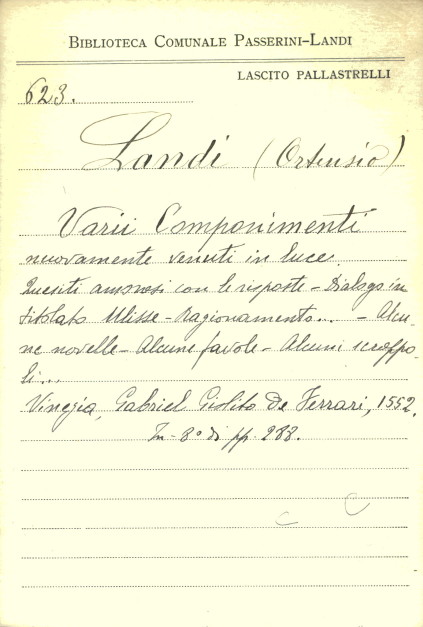 BIBLIOTECA COMUNALE PASSERINI-LANDI
LASCITO PALLASTRELLI
623.
Landi (Ortensio)
Varii Componimenti
nuovamente venuti in luce.
Quesiti amorosi con le risposte - Dialogo in
titolato Ulisse - Ragionamento... - Alcu-
ne novelle - Alcune favole - Alcuni scroppo
li...
Vinegia, Gabriel Giolito de Ferrari, 1552.
In-8° di pp. 288.